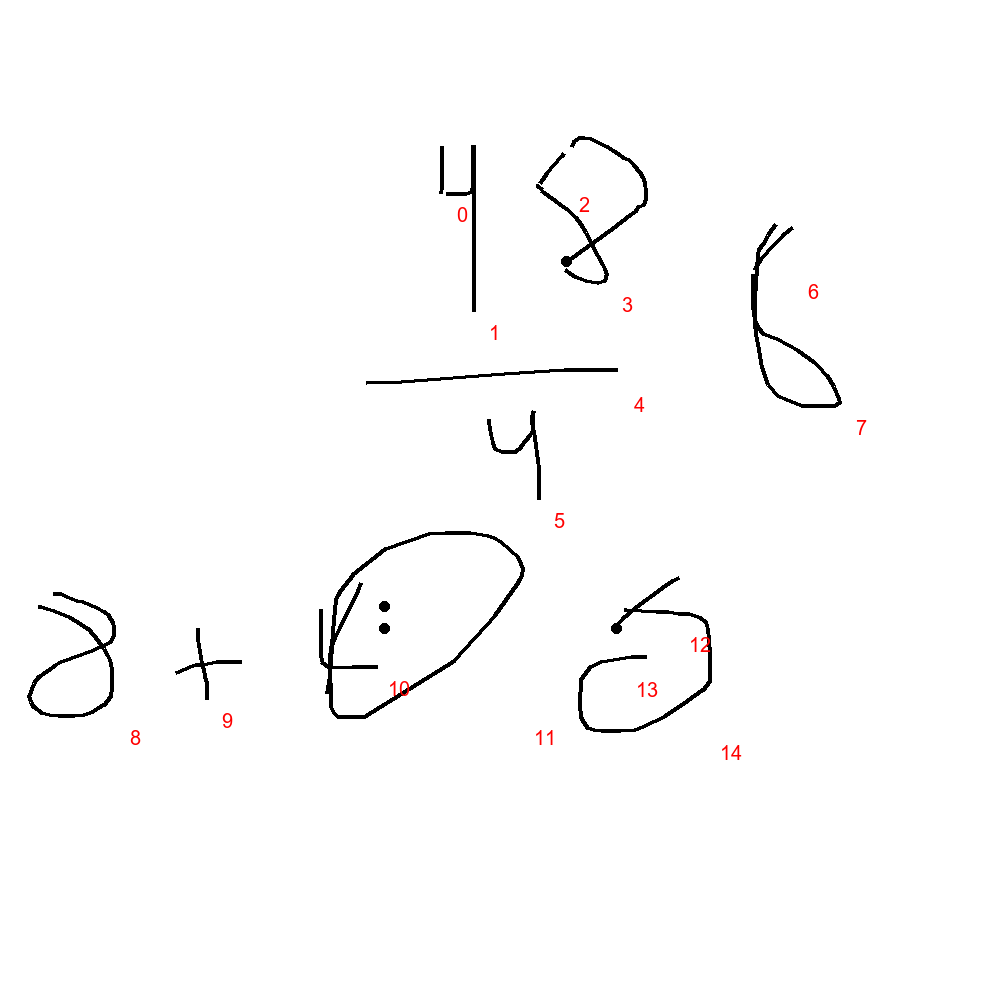 48
6
4
8 + 4 5
0 1 2 3 4 5 6 7 8 9 10 11 12 13 14